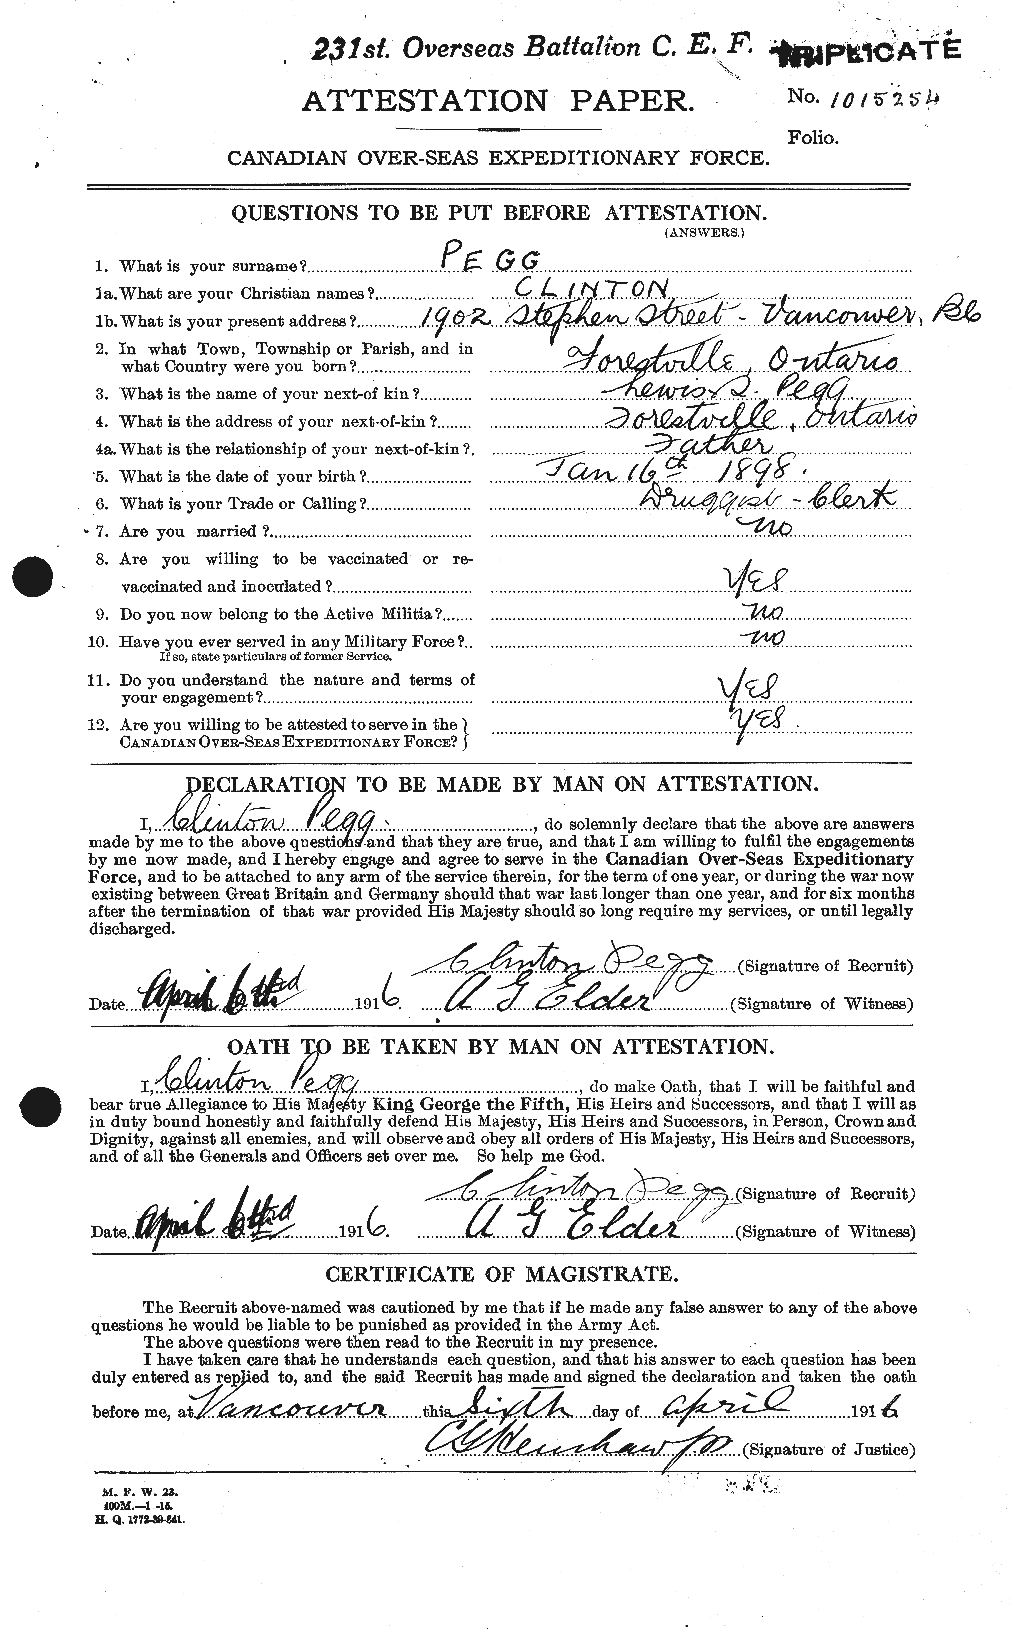 231st. Overseas Battalion C. E. F. TRIPLICATE
ATTESTATION PAPER. No. 1015254
Folio.
CANADIAN OVER-SEAS EXPEDITIONARY FORCE.
QUESTIONS TO BE PUT BEFORE ATTESTATION.
(ANSWERS.)
1. What is your surname? PEGG
1a. What are your Christian names? CLINTON
1b. What is your present address? 1902 Stephen Street - Vancouver, BC
2. In what Town, Township or Parish, and in
what Country were you born? Forestville, Ontario
3. What is the name of your next-of kin? Lewis S. Pegg
4. What is the address of your next-of-kin? Forestville, Ontario
4a. What is the relationship of your next-of-kin? Father
5. What is the date of your birth? Jan 16th 1898.
6. What is your Trade or Calling? Druggist - Clerk
7. Are you married? no
8. Are you willing to be vaccinated or re-
vaccinated and inoculated? YES
9. Do you now belong to the Active Militia? no
10. Have you ever served in any Military Force? no
If so, state particulars of former Service.
11. Do you understand the nature and terms of
your engagement? YES
12. Are you willing to be attested to serve in the }
CANADIAN OVER-SEAS EXPEDITIONARY FORCE? } YES.
DECLARATION TO BE MADE BY MAN ON ATTESTATION.
I, Clinton Pegg, do solemnly declare that the above are answers
made by me to the above questions and that they are true, and that I am willing to fulfil the engagements
by me now made, and I hereby engage and agree to serve in the Canadian Over-Seas Expeditionary
Force, and to be attached to any arm of the service therein, for the term of one year, or during the war now
existing between Great Britain and Germany should that war last longer than one year, and for six months
after the termination of that war provided His Majesty should so long require my services, or until legally
discharged.
Clinton Pegg (Signature of Recruit)
Date April 6th 1916. A G Elder (Signature of Witness)
OATH TO BE TAKEN BY MAN ON ATTESTATION.
I, Clinton Pegg, do make Oath, that I will be faithful and
bear true Allegiance to His Majesty King George the Fifth, His Heirs and Successors, and that I will as
in duty bound honestly and faithfully defend His Majesty, His Heirs and Successors, in Person, Crown and
Dignity, against all enemies, and will observe and obey all orders of His Majesty, His Heirs and Successors,
and of all the Generals and Officers set over me. So help me God.
Clinton Pegg (Signature of Recruit)
Date April 6th 1916. A G Elder (Signature of Witness)
CERTIFICATE OF MAGISTRATE.
The Recruit above-named was cautioned by me that if he made any false answer to any of the above
questions he would be liable to be punished as provided in the Army Act.
The above questions were then read to the Recruit in my presence.
I have taken care that he understands each question, and that his answer to each question has been
duly entered as replied to, and the said Recruit has made and signed the declaration and taken the oath
before me, at Vancouver this Sixth day of April 1916
CG Henshaw JP (Signature of Justice)
M. F. W. 23.
400M.—1 -16.
H. Q. 1772-39-841.